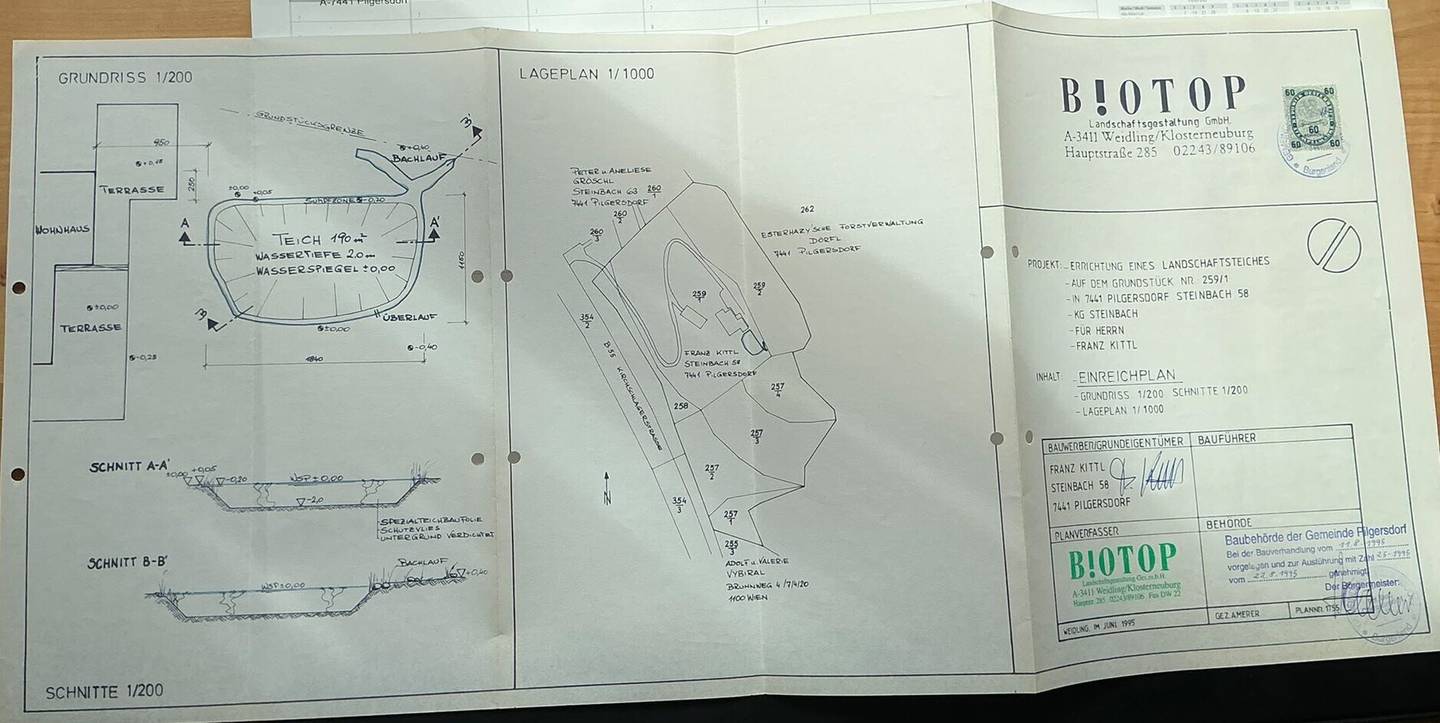 A-7441 Pilgersdorf
GRUNDRISS 1/200
GRUNDSTÜCKSGRENZE
B'
+0,40
BACHLAUF
950
+0,15
250
TERRASSE
±0,00
+0,05
SUMPFZONE -0,20
WOHNHAUS
A
A'
TEICH 190 m²
WASSERTIEFE 2.0 m
WASSERSPIEGEL ±0,00
1150
±0,00
TERRASSE
B'
ÜBERLAUF
±0,00
-0,25
-0,40
SCHNITT A-A'
±0,00
+0,05
-0,20
WSP ±0,00
-2,0
SPEZIALTEICHBAUFOLIE
SCHUTZVLIES
UNTERGRUND VERDICHTET
SCHNITT B-B'
BACHLAUF
WSP ±0,00
+0,40
SCHNITTE 1/200
LAGEPLAN 1/1000
PETER u. ANELIESE
GRÖSCHL
STEINBACH 63
7441 PILGERSDORF
260/1
260/2
260/3
262
ESTERHAZY'SCHE FORSTVERWALTUNG
DÖRFL
7441 PILGERSDORF
259/1
259/2
354/2
B 55 KIRCHSCHLAGERSTRASSE
FRANZ KITTL
STEINBACH 58
7441 PILGERSDORF
258
257/4
257/3
257/2
N
354/3
257/1
255/3
ADOLF u. VALERIE
VYBIRAL
BRUNNWEG 4/7/4/20
1100 WIEN
B!OTOP
Landschaftsgestaltung GmbH.
A-3411 Weidling/Klosterneuburg
Hauptstraße 285 02243/89106
60 60
60
60 60
Burgenland
PROJEKT: - ERRICHTUNG EINES LANDSCHAFTSTEICHES
- AUF DEM GRUNDSTÜCK NR 259/1
- IN 7441 PILGERSDORF STEINBACH 58
- KG STEINBACH
- FÜR HERRN
- FRANZ KITTL
INHALT: - EINREICHPLAN
- GRUNDRISS 1/200 SCHNITTE 1/200
- LAGEPLAN 1/1000
BAUWERBER/GRUNDEIGENTÜMER
BAUFÜHRER
FRANZ KITTL
STEINBACH 58
7441 PILGERSDORF
PLANVERFASSER
BEHÖRDE
B!OTOP
Landschaftsgestaltung Ges.m.b.H.
A-3411 Weidling/Klosterneuburg
Hauptstr. 285 02243/89106 Fax DW 22
Baubehörde der Gemeinde Pilgersdorf
Bei der Bauverhandlung vom 11.8.1995
vorgelegen und zur Ausführung mit Zahl 25-1995
vom 22.8.1995 genehmigt.
Der Bürgermeister:
Burgenland
WEIDLING, IM JUNI 1995
GEZ. AMERER
PLANNR. 1755